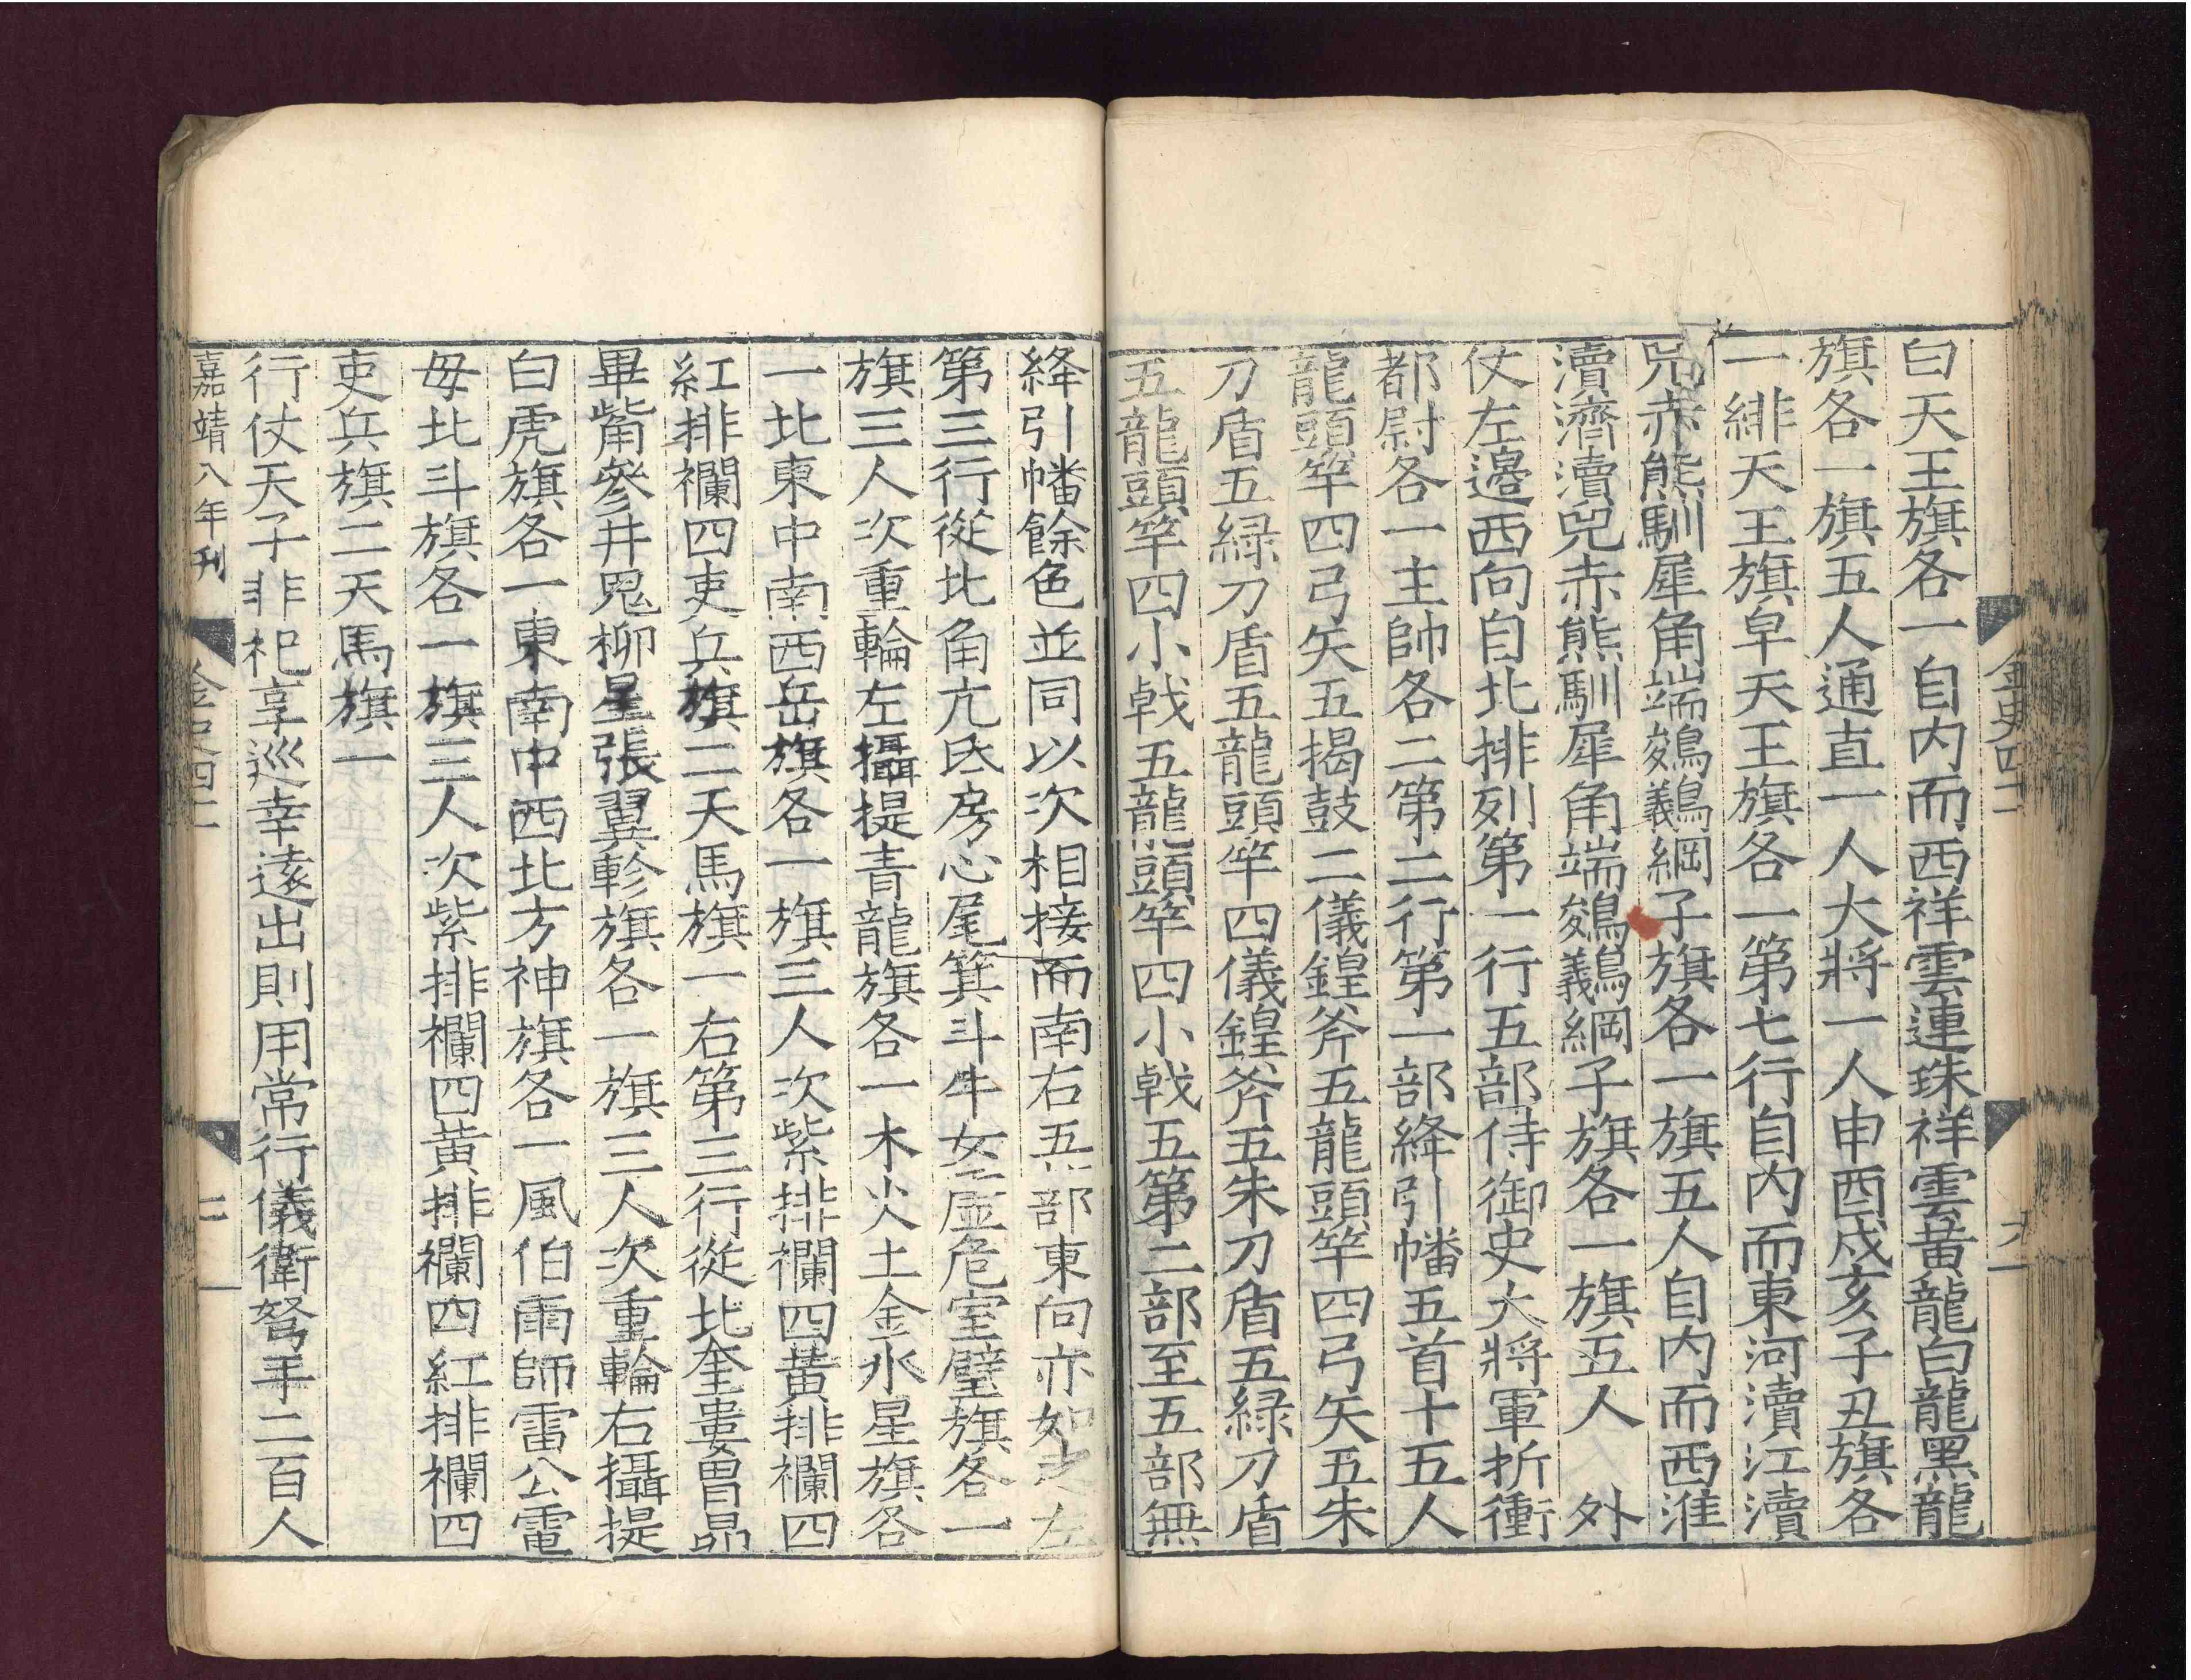 白天王旗各一自内而西祥雲連珠祥雲黃龍白龍黑龍
旗各一旗五人通直一人大將一人申酉戌亥子丑旗各
一緋天王旗皁天王旗各一第七行自内而東河瀆江瀆
兕赤熊馴犀角端鵔鸃綱子旗各一旗五人自内而西淮
瀆濟瀆兕赤熊馴犀角端鵔鸃綱子旗各一旗五人 外
仗左邊西向自北排列第一行五部侍御史大將軍折衝
都尉各一主帥各二第二行第一部絳引幡五首十五人
龍頭竿四弓矢五揭鼓二儀鍠斧五龍頭竿四弓矢五朱
刀盾五緑刀盾五龍頭竿四儀鍠斧五朱刀盾五緑刀盾
五龍頭竿四小戟五龍頭竿四小戟五第二部至五部無
金史四十二
絳引幡餘色並同以次相接而南右五部東向亦如之左
第三行從北角亢氐房心尾箕斗牛女虛危室壁旗各一
旗三人次重輪左攝提青龍旗各一木火土金水星旗各
一北東中南西岳旗各一旗三人次紫排襴四黃排襴四
紅排襴四吏兵旗二天馬旗一右第三行從北奎婁胃昴
畢觜參井鬼柳星張翼軫旗各一旗三人次重輪右攝提
白虎旗各一東南中西北方神旗各一風伯雨師雷公電
母北斗旗各一旗三人次紫排襴四黃排襴四紅排襴四
吏兵旗二天馬旗一
行仗天子非祀享巡幸遠出則用常行儀衛弩手二百人
嘉靖八年刊
金史四十二